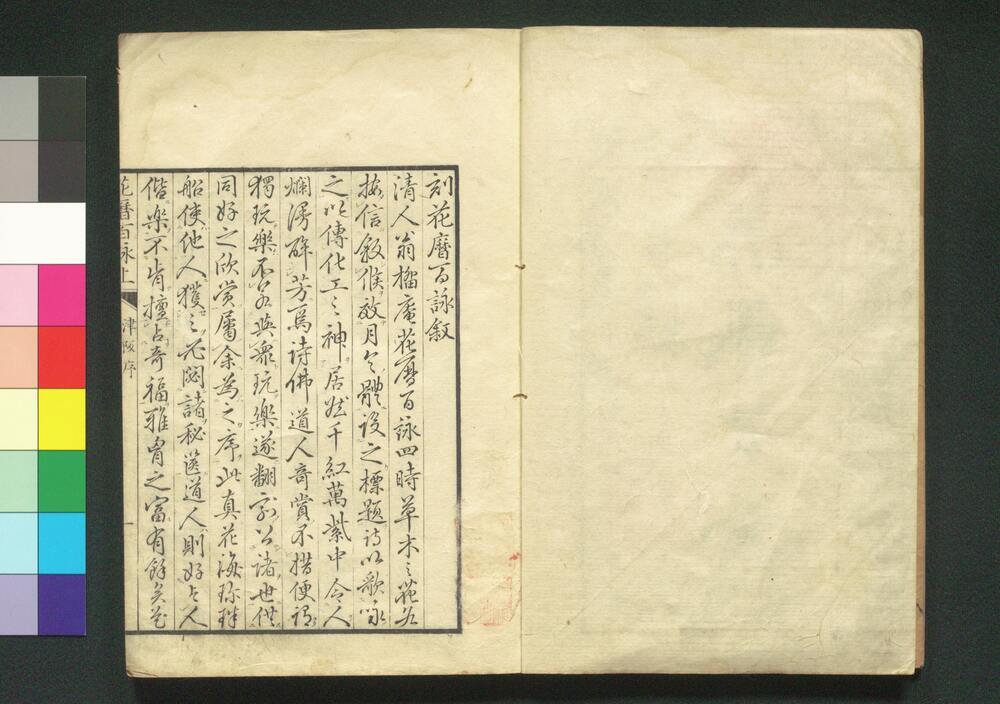 刻花曆百詠叙
清人翁橊庵花曆百詠四時草木之花各
按信叙候效月令體設之標題詩以歌咏
之以傳化工之神居然千紅萬紫中令人
爛漫酔芳焉詩佛道人奇賞不措便謂
獨玩樂不若與衆玩樂遂翻刻公諸世供
同好之欣賞屬余為之序此真花海珍珠
船使他人獲之必閟諸秘篋道人則好与人
偕樂不肯擅占奇福雅胃之富有餘矣花
花曆百咏上
津阪序
一